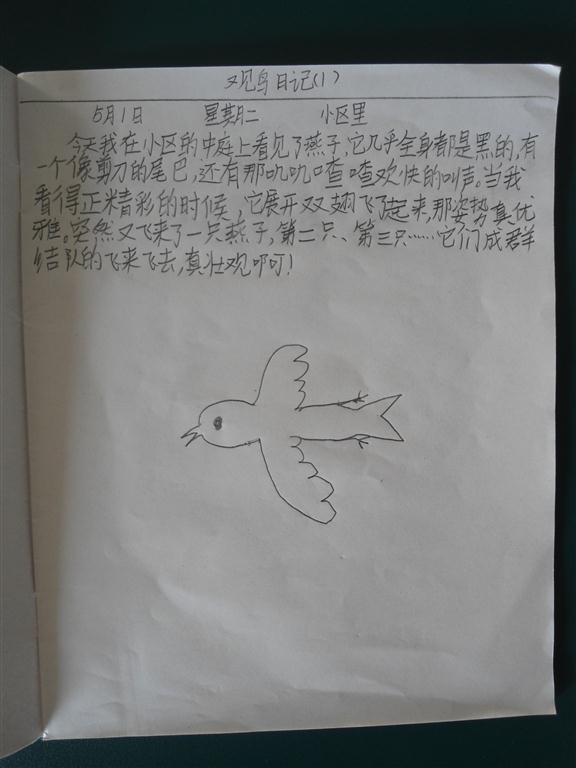 观鸟日记(1)
5月1日 星期二 小区里
今天我在小区的中庭上看见了燕子,它几乎全身都是黑的,有
一个像剪刀的尾巴,还有那叽叽喳喳欢快的叫声。当我
看得正精彩的时候,它展开双翅飞了起来,那姿势真优
雅。突然又飞来了一只燕子,第二只、第三只……它们成群
结队的飞来飞去,真壮观啊!